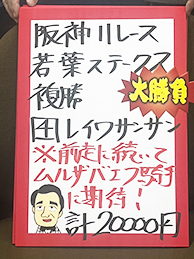 阪神11レース
若葉ステークス
複勝
大勝負
4レイワサンサン
※前走に続いて
ムルザバエフ騎手
に期待!
計20000円